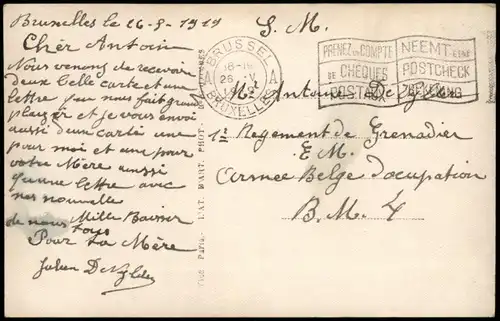 Bruxelles le 26-8-1919
Chèr Antoin
Nous venons de recevoir
deux Belle carte et une
lettre qui nous fait grand
plaizir et je vous envoi
aussi deux cartes une
pour moi et une pour
votre Mère aussi
qu'une lettre avec
nos nouvelle
de nous tous
Mille Baiser
Pour ta Mère
Julien De
S. M.
BRUSSEL
BRUXELLES
PRENEZ UN COMPTE
DE CHEQUES
POSTAUX
NEEMT EENE
POSTCHECK
REKENING
M. Antoine De
1r Regement de Grenadier
E M.
Armee Belge d'ocupation
B. M. 4
L'AT. D'ART. PHOT.